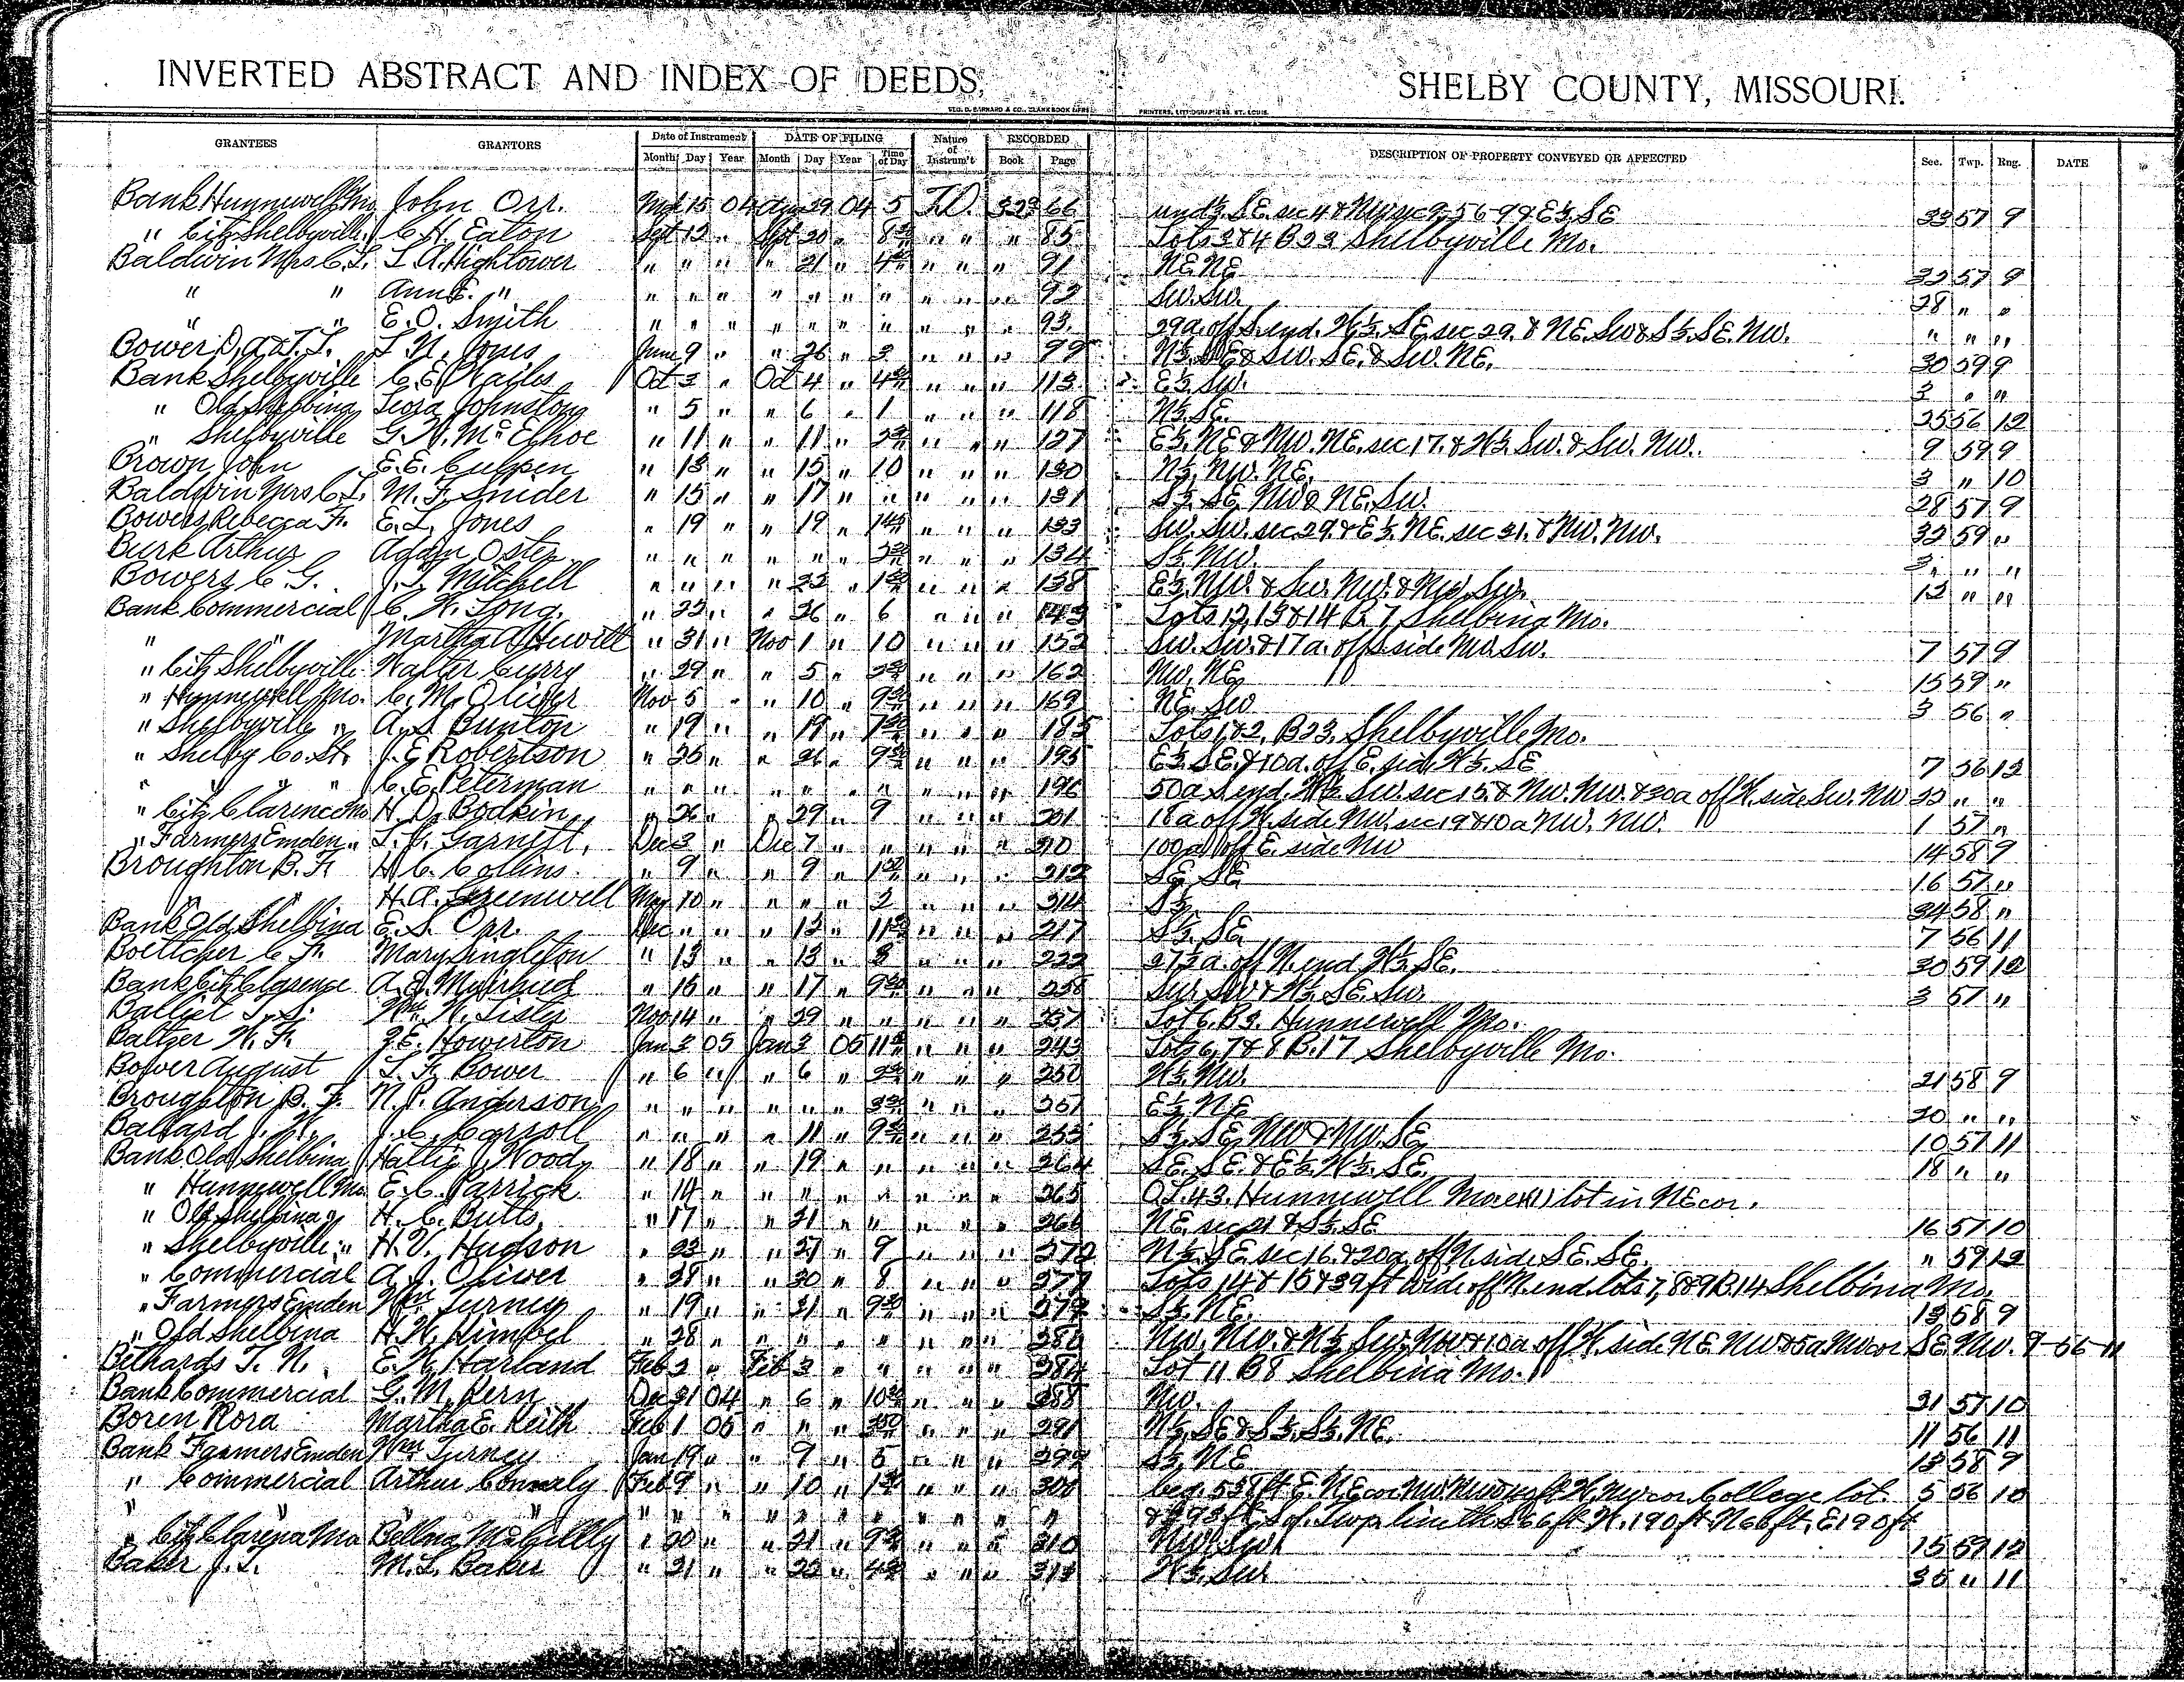 INVERTED ABSTRACT AND INDEX OF DEEDS, SHELBY COUNTY, MISSOURI.
GEO. D. BARNARD & CO., BLANK BOOK PRINTERS, LITHOGRAPHERS, ST. LOUIS.
GRANTEES GRANTORS Date of Instrument DATE OF FILING Nature of Instrum't RECORDED DESCRIPTION OF PROPERTY CONVEYED OR AFFECTED Sec. Twp. Rng. DATE
Month Day Year Month Day Year Time of Day Book Page
Bank Hunnewell Mo John Orr. 15 04 29 04 5 T.D. 32 366 und½ SE. sec 4 & NW sec 9-56-9 & E½ SE 33 57 9
" Citz Shelbyville C. H. Eaton Sept 12 " Sept 20 " " " " 85 Lots 3 & 4 B 23 Shelbyville Mo.
Baldwin Mrs C. L. L. A. Hightower " " " " 21 " " " " 91 NE. NE 32 57 9
" " Ann E. " " " " " " " " " " " 92 SW. SW. 28 " "
" " E. O. Smith " " " " " " " " " " 93 29a. off S. end. W½. SE. sec 29. & NE. SW & S½. SE. NW. " " "
Bower D. A & T. L. L. N. Jones June 9 " " 26 " 3 " " " 99 N½. SE & SW. SE. & SW. NE. 30 59 9
Bank Shelbyville C. E. Oct 3 " Oct 4 " " " " 113 E½ SW. 3 " "
" Old Shelbina Leora Johnston " 5 " " 6 " 1 " " " 118 N½. SE. 25 56 12
" Shelbyville G. W. McElhoe " 11 " " 11 " " " " 127 E½. NE & NW. NE. sec 17. & W½. SW. & SW. NW. 9 59 9
Brown John E. E. Culpen " 13 " " 15 " 10 " " " 130 N½. NW. NE. 3 " 10
Baldwin Mrs C. L. M. F. Snider " 15 " " 17 " " " " " 131 S½. SE. NW & NE. SW. 28 57 9
Bowers Rebecca F. E. L. Jones " 19 " " 19 " " " " 133 SW. SW. sec 29 & E½. NE. sec 31. & NW. NW. 32 59 "
Burk Arthur Oster " " " " " " " " " 134 S½. NW. 3 " "
Bowers C. G. J. L. Mitchell " " " " 22 " " " " 138 E½. NW. & SW. NW. & NW. SW. 12 " "
Bank Commercial C. W. Long. " 22 " " 26 " 6 " " " 143 Lots 12, 13 & 14 B. 7 Shelbina Mo.
" " Martha A Hewitt " 31 " Nov 1 " 10 " " " 152 SW. SW. & 17a. off S. side NW. SW. 7 57 9
" Citz Shelbyville Walter Curry " 29 " " 5 " " " " 162 NW. NE 15 59 "
" Hunnewell Mo. C. M. Oliver Nov 5 " " 10 " " " " 169 NE. SW 3 56 "
" Shelbyville " A. S. Bunton " 19 " " 19 " " " " 185 Lots 1 & 2. B 23. Shelbyville Mo.
" Shelby Co. St. J. E. Robertson " 25 " " 26 " " " " 195 E½. SE. & 10a. off E. sid. W½. SE 7 56 12
" " " " C. E. Peterman " " " " " " " " " " 196 50a S. end. W½ SW. sec 15. & NW. NW. & 30a off W. side SW. NW 22 " "
" Citz Clarence Mo H. D. Bodkin " 26 " " 29 " 9 " " " 201 18a off W. side NW. sec 19 & 10a NW. NW. 1 57 "
" Farmers Emden " L. J. Garnett. Dec 3 " Dec 7 " " " " " 210 100a off E. side NW 14 58 9
Broughton B. F. H. C. Collins " 9 " " 9 " " " " 212 SE. SE 16 57 "
" " H. A. Greenwell May 10 " " " " 2 " " " 214 S½ 34 58 "
Bank Old Shelbina E. S. Orr. Dec " " " 12 " " " " 217 S½. SE. 7 56 11
Boettcher C. F. Mary Singleton " 13 " " 13 " 3 " " " 222 27½a. off N. end W½. SE. 30 59 12
Bank Citz Clarence " 16 " " 17 " " " " 238 SW. SW & W½. SE. SW. 3 57 "
Balliet L. S. Wm. N. Lister Nov 14 " " 29 " " " " " 237 Lot 6. B 3. Hunnewell Mo.
Baltzer W. F. J. E. Howerton Jan 3 05 Jan 3 05 " " " 243 Lots 6, 7 & 8 B. 17 Shelbyville Mo.
Bower August T. F. Bower " 6 " " 6 " " " " 250 W½. NW. 21 58 9
Broughton B. F. N. P. Anderson " " " " " " " " " 251 E½ NE 20 " "
Ballard J. W. J. C. Carroll " " " " 11 " " " " 253 S½. SE. NW & NW. SE 10 57 11
Bank Old Shelbina Hattie J. Wood " 18 " " 19 " " " " " 264 SE. SE. & E½. W½. SE. 18 " "
" Hunnewell Mo E. C. Parrick " 14 " " " " " " " " 265 O.L. 43. Hunnewell Mo ex (1) lot in NE cor.
" Old Shelbina " H. C. Butts " 17 " " 21 " " " " " 266 NE. sec 21 & S½. SE 16 57 10
" Shelbyville " H. V. Hudson " 23 " " 27 " 9 " " " 272 N½. SE. sec 16. & 20a. off N. side SE. SE. " 59 12
" Commercial A. J. Oliver " 28 " " 30 " 8 " " " 277 Lots 14 & 15 & 39 ft wide off N. end lots 7, 8 & 9 B. 14 Shelbina Mo.
" Farmers Emden Wm. Turney " 19 " " 31 " " " " 279 S½. NE. 13 58 9
" Old Shelbina H. W. Himbel " 28 " " " " " " " " 280 NW. NW. & W½ SW. NW & 10a off W. side NE NW & 5a NW cor SE. NW. 9-56-11
Bethards T. N. E. W. Harland Feb 2 " Feb 3 " " " " " 284 Lot 11 B 8 Shelbina Mo.
Bank Commercial G. M. Dec 31 04 " 6 " " " " 288 NW. 31 57 10
Boren Rora Martha E. Keith Feb 1 05 " " " " " " 291 N½. SE & S½. S½. NE. 11 56 11
Bank Farmers Emden Wm. Turney Jan 19 " " 9 " 5 " " " 299 S½. NE 13 58 9
" Commercial Arthur Connaly Feb 9 " " 10 " " " " 300 beg. 538 ft E. NE cor NW. NW W. NW cor College lot. 5 56 10
" " " " " " " " " " " " " " & 93 ft S. of Twp. line th S 66 ft W. 190 ft N 66 ft. E 190 ft
" Citz Clarence Mo McGilly " 20 " " 21 " " " " 310 NW. SW. 15 57 12
Baker J. L. M. L. Baker " 21 " " 22 " " " " 313 W½. SW 35 " 11